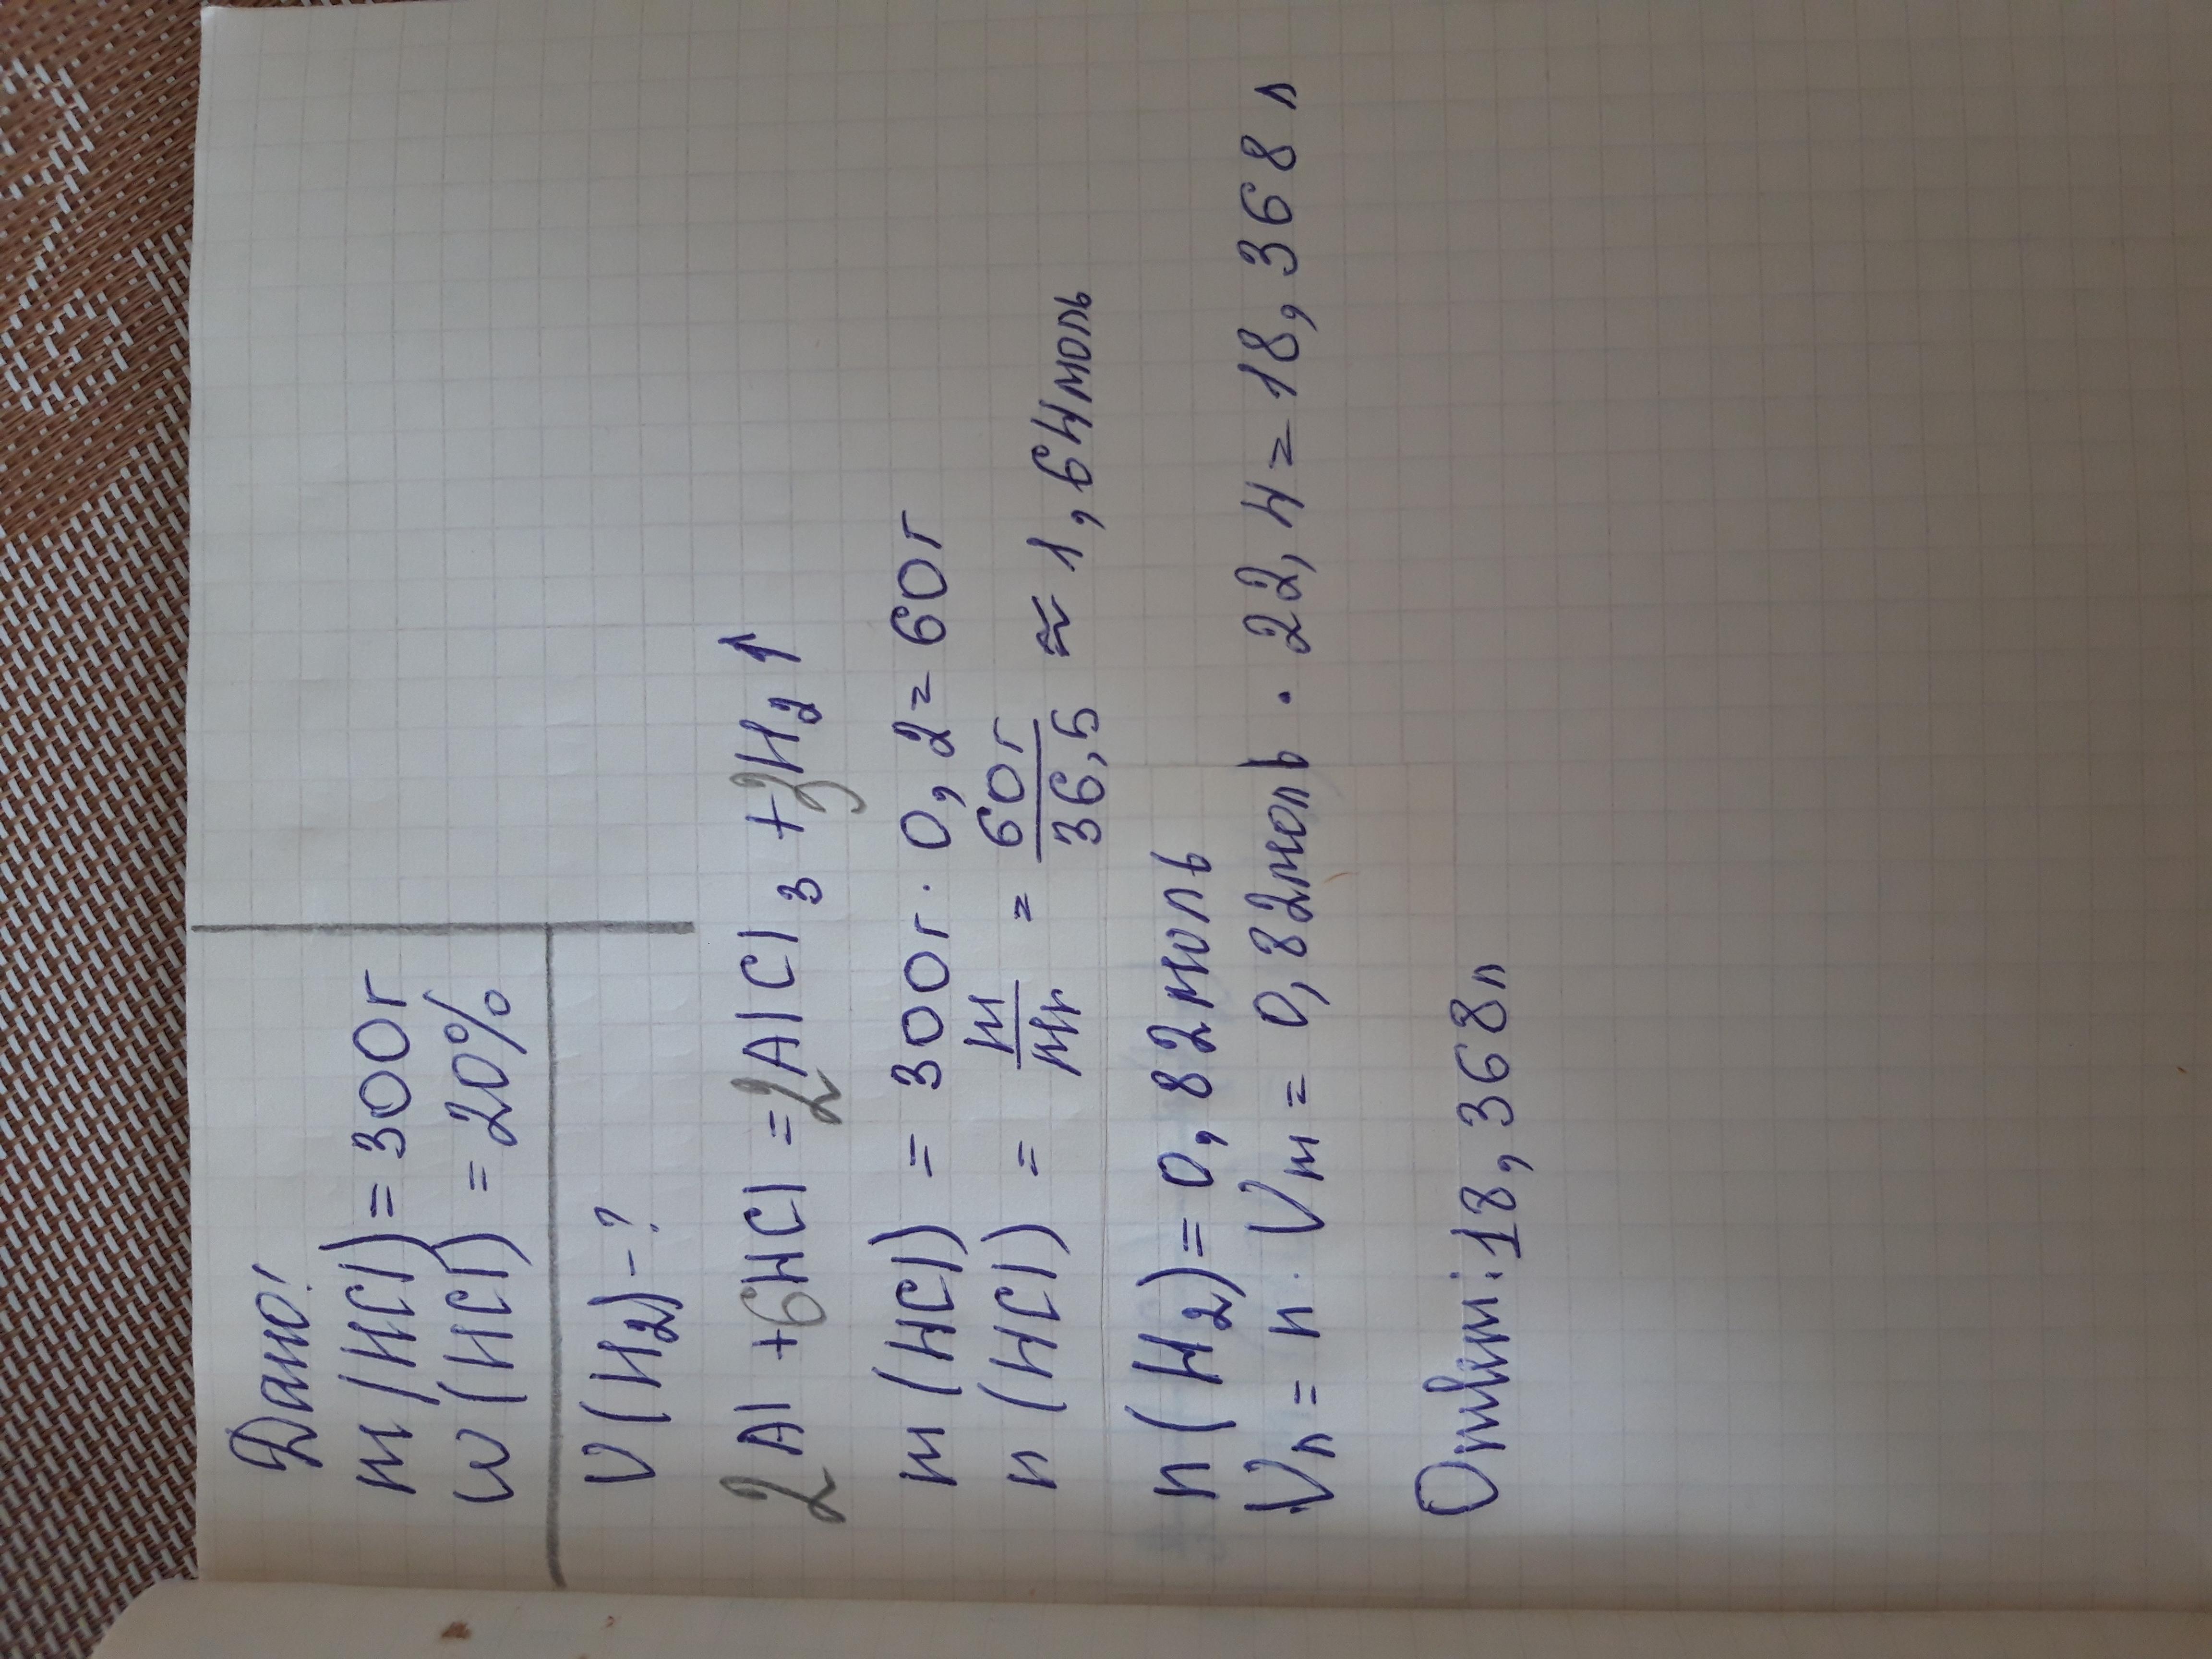 Дано!
m(HCl)=300г
w(HCl)=20%
V(H₂)-?
2Al+6HCl=2AlCl₃+3H₂↑
m(HCl) = 300г·0,2=60г
n(HCl) = m/Mr = 60г/36,5 ≈ 1,64моль
n(H₂)=0,82моль
Vл=n·Vm=0,82моль·22,4=18,368л
Ответ:18,368л